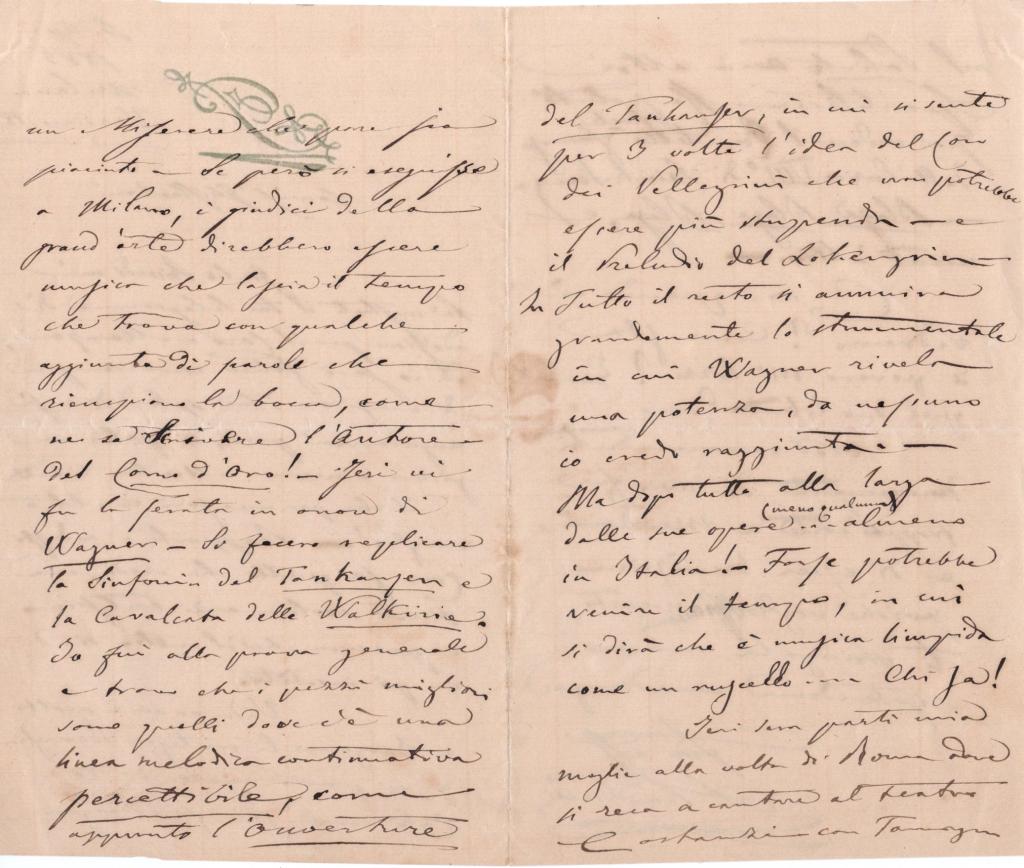 un Miserere che pare sia
piaciuto – Se però si eseguisse
a Milano, i giudici della
grand'arte direbbero essere
musica che lascia il tempo
che trova con qualche
aggiunta di parole che
riempiono la bocca, come
ne sa scrivere l'Autore
del Corno d'Oro! – Jeri vi
fu la serata in onore di
Wagner – Si fecero replicare
la Sinfonia del Tankauser e
la Cavalcata delle Walkirie.
Io fui alla prova generale
e trovo che i pezzi migliori
sono quelli dove c'è una
linea melodica continuativa
percettibile, come
appunto l'Ouverture
del Tankauser, in cui si sente
per 3 volte l'idea del Coro
dei Pellegrini che non potrebbe
essere più stupenda – e
il Preludio del Lohengrin –
In tutto il resto si ammira
grandemente lo strumentale
in cui Wagner rivela
una potenza, da nessuno
io credo raggiunta. –
Ma dopo tutto alla larga
(meno qualcuna)
dalle sue opere ... almeno
in Italia! – Forse potrebbe
venire il tempo, in cui
si dirà che è musica limpida
come un ruscello ... Chi sa!
Ieri sera partì mia
moglie alla volta di Roma dove
si reca a cantare al teatro
Costanzi con Tamagno